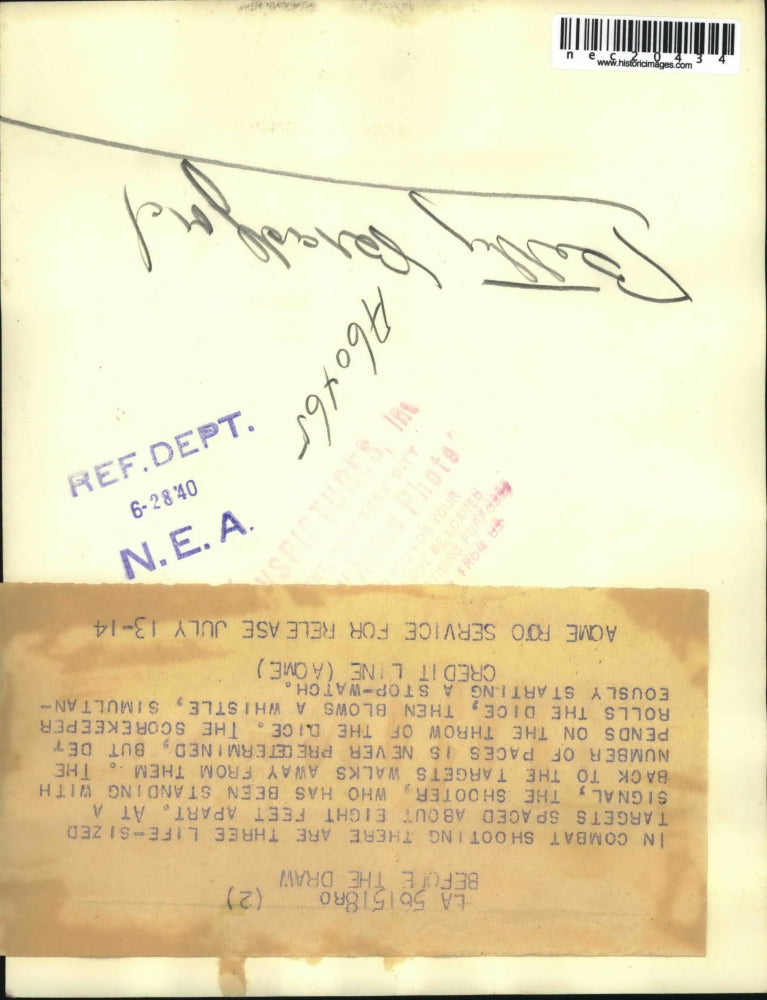 nec20434
www.historicimages.com
Betty Bradford
REF. DEPT.
6-28'40
N.E.A.
Photo"
FOR YOUR
BE LOANED
FROM US
LA 561518RO (2)
BEFORE THE DRAW
IN COMBAT SHOOTING THERE ARE THREE LIFE-SIZED
TARGETS SPACED ABOUT EIGHT FEET APART. AT A
SIGNAL, THE SHOOTER, WHO HAS BEEN STANDING WITH
BACK TO THE TARGETS WALKS AWAY FROM THEM. THE
NUMBER OF PACES IS NEVER PREDETERMINED, BUT DET
PENDS ON THE THROW OF THE DICE. THE SCOREKEEPER
ROLLS THE DICE, THEN BLOWS A WHISTLE, SIMULTAN-
EOUSLY STARTING A STOP-WATCH.
CREDIT LINE (ACME)
ACME SERVICE FOR RELEASE JULY 13-14